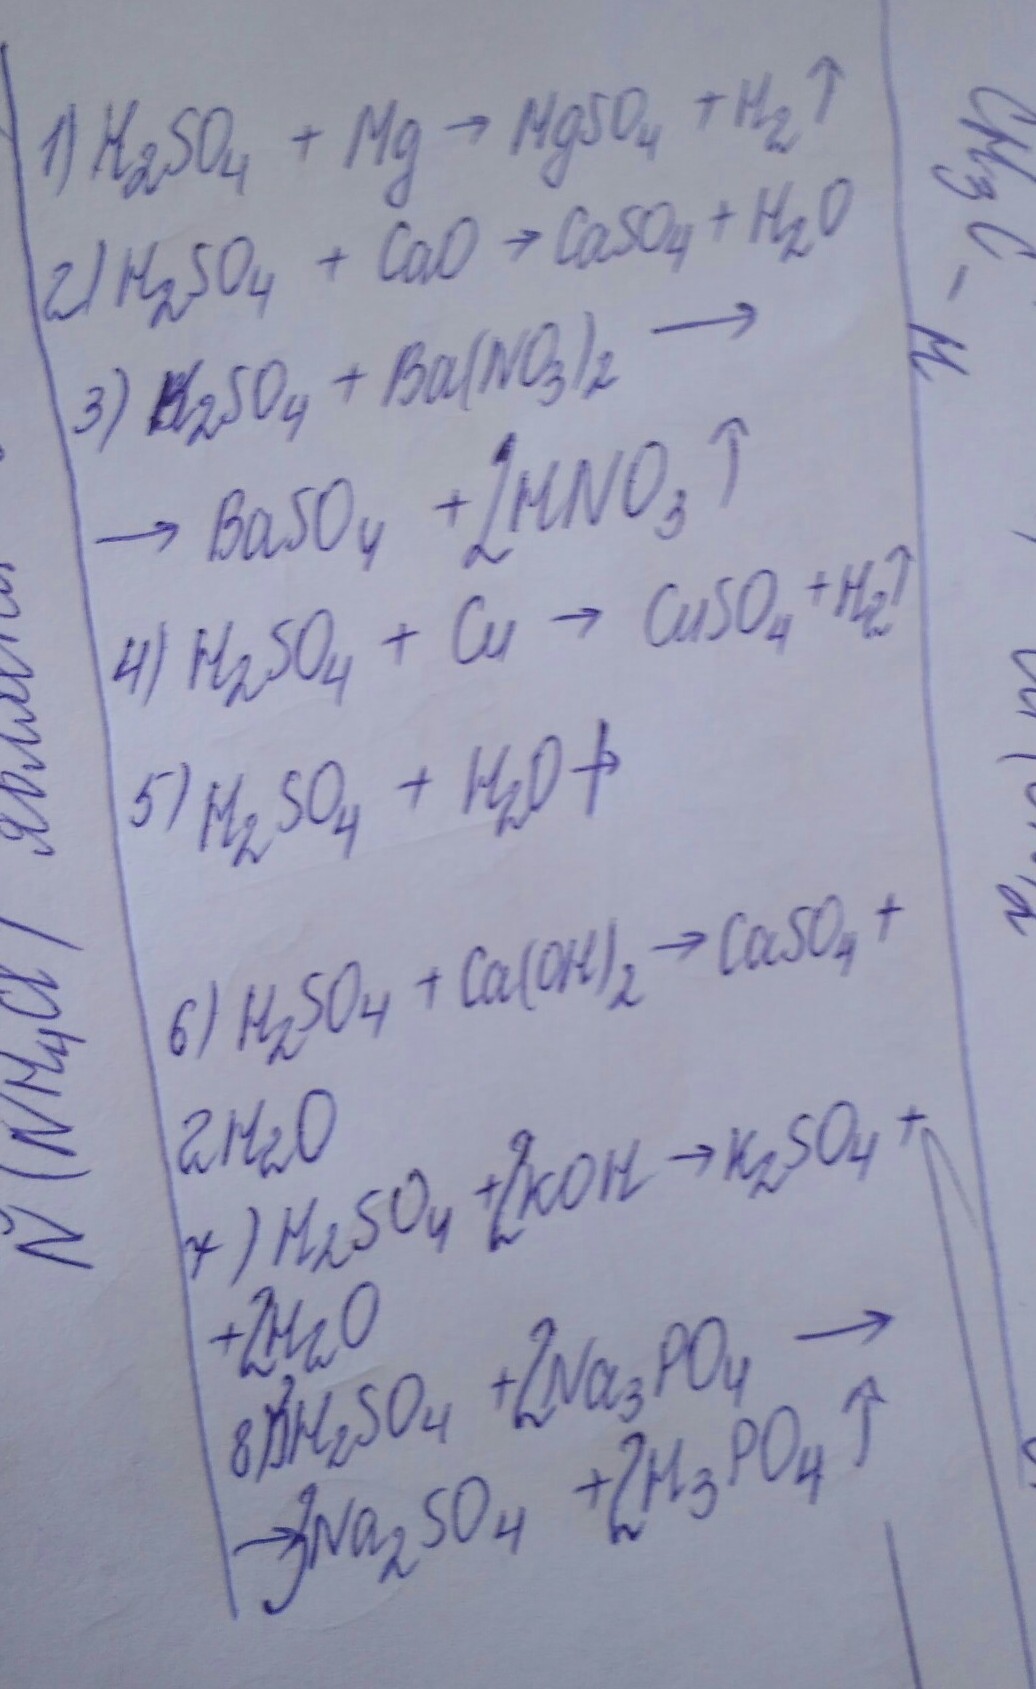 1) H₂SO₄ + Mg → MgSO₄ + H₂↑
2) H₂SO₄ + CaO → CaSO₄ + H₂O
3) H₂SO₄ + Ba(NO₃)₂ →
→ BaSO₄ + 2HNO₃↑
4) H₂SO₄ + Cu → CuSO₄ + H₂↑
5) H₂SO₄ + H₂O ↛
6) H₂SO₄ + Ca(OH)₂ → CaSO₄ +
2H₂O
7) H₂SO₄ + 2KOH → K₂SO₄ +
+ 2H₂O
8) 3H₂SO₄ + 2Na₃PO₄ →
→ 3Na₂SO₄ + 2H₃PO₄↑
N (NH₄Cl)
CH₃C - H